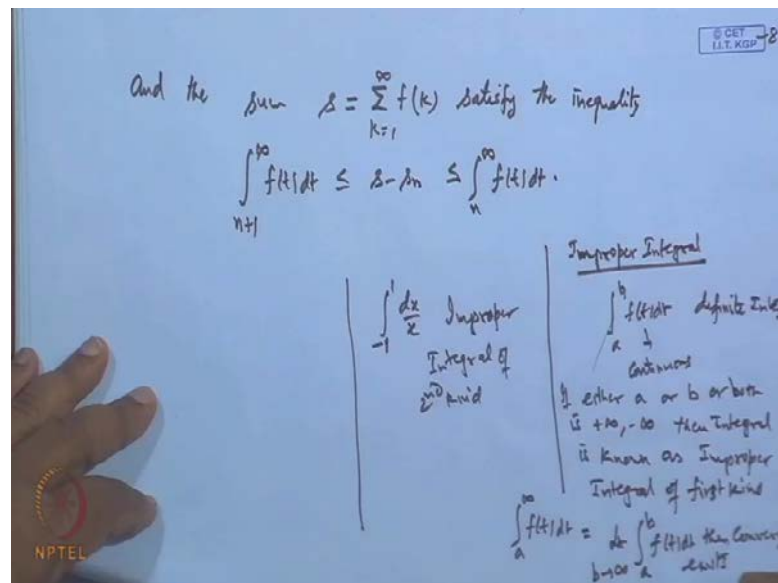 © CET
I.I.T. KGP
-8
And the sum s = ∑_{k=1}^{∞} f(k) satisfy the inequality
∫_{n+1}^{∞} f(t)dt ≤ s-sn ≤ ∫_{n}^{∞} f(t)dt.
∫_{-1}^{1} dx/x Improper
Integral of
2nd kind
Improper Integral
∫_{a}^{b} f(t)dt definite Inte
↓
Continuous
If either a or b or both
is +∞, -∞ then Integral
is known as Improper
Integral of first kind
∫_{a}^{∞} f(t)dt = lt_{b→∞} ∫_{a}^{b} f(t)dt then
NPTEL